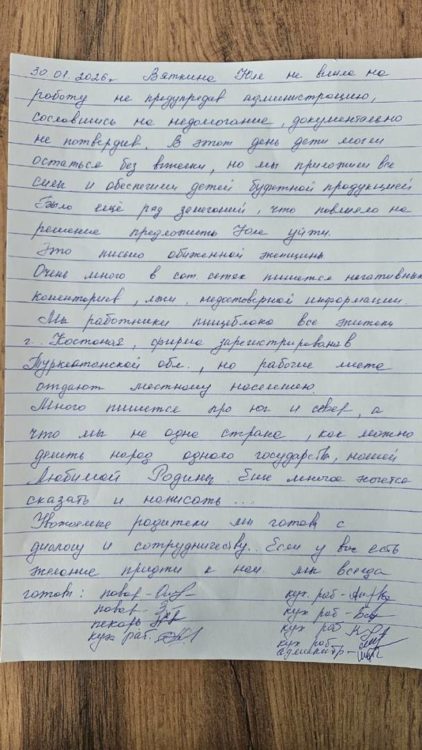 30 01. 2026г Вяткина Юле не вышла на
работу не предупредив администрацию,
сославшись на недомогание, документально
не потвердив. В этот день дети могли
остаться без выпечки, но мы приложили все
силы и обеспечили детей буфетной продукцией
Было ещё ряд замечаний, что повлияло на
решение предложить Юле уйти.
Это письмо обиженной женщины
Очень много в сот сетях пишется негативных
коментариев, лжи, недостоверной информации.
Мы работники пищеблока все жители
г. Костаная, фирма зарегистрирована в
Туркестанской обл., но рабочие места
отдают местному населению.
Много пишется про юг и север, а
что мы не одна страна, как можно
делить народ одного государства, нашей
Любимой Родины. Ещё многое хочется
сказать и написать...
Уважаемые родители мы готовы с
диалогу и сотрудничеству.. Если у вас есть
желание придти к нам мы всегда
готовы: повар -
повар -
пекарь
кух раб.
кух. раб -
кух раб -
кух раб
кух раб -
администр -